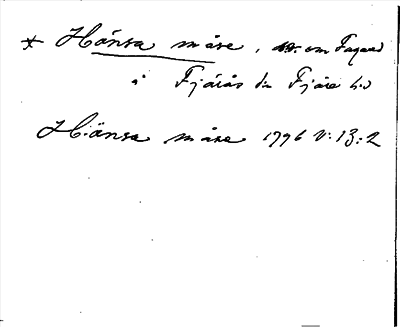 * Hönsa måse, om Fagared
i Fjärås sn Fjäre hd
Hönsa måse 1796 V:13:2